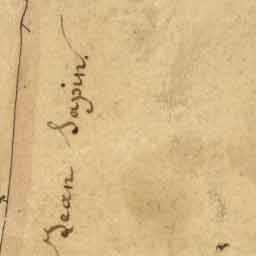 Jean Sapin.